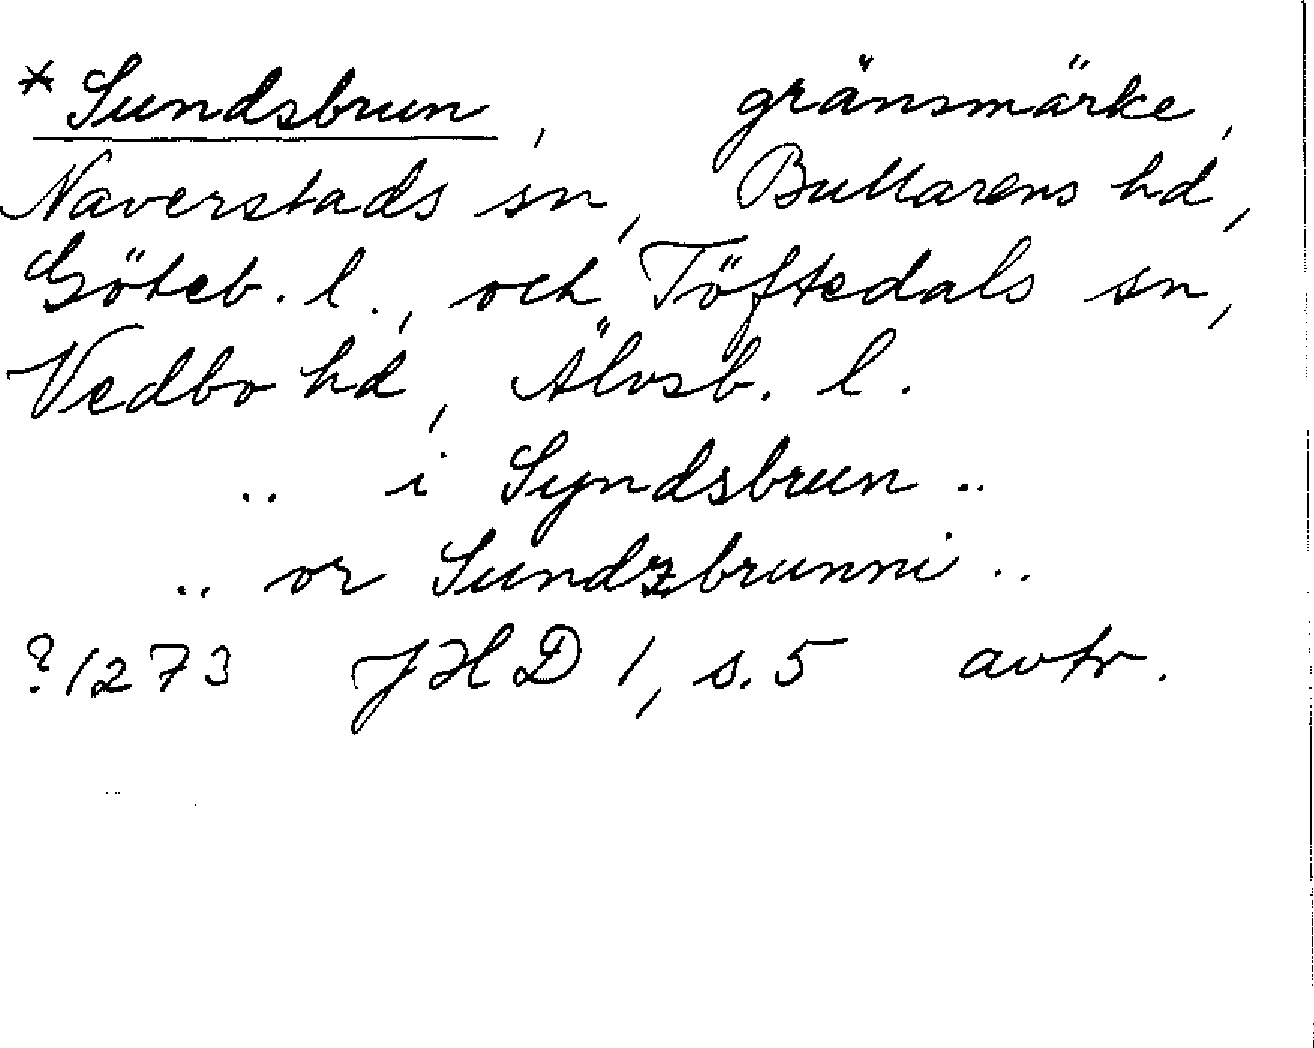 *Sundsbrun, gränsmärke,
Naverstads sn, Bullarens hd,
Göteb. l., och Töftedals sn,
Vedbo hd, Älvsb. l.
.. i Syndsbrun ..
.. or Sundzbrunni ..
?1273 JHD 1, s. 5 avtr.